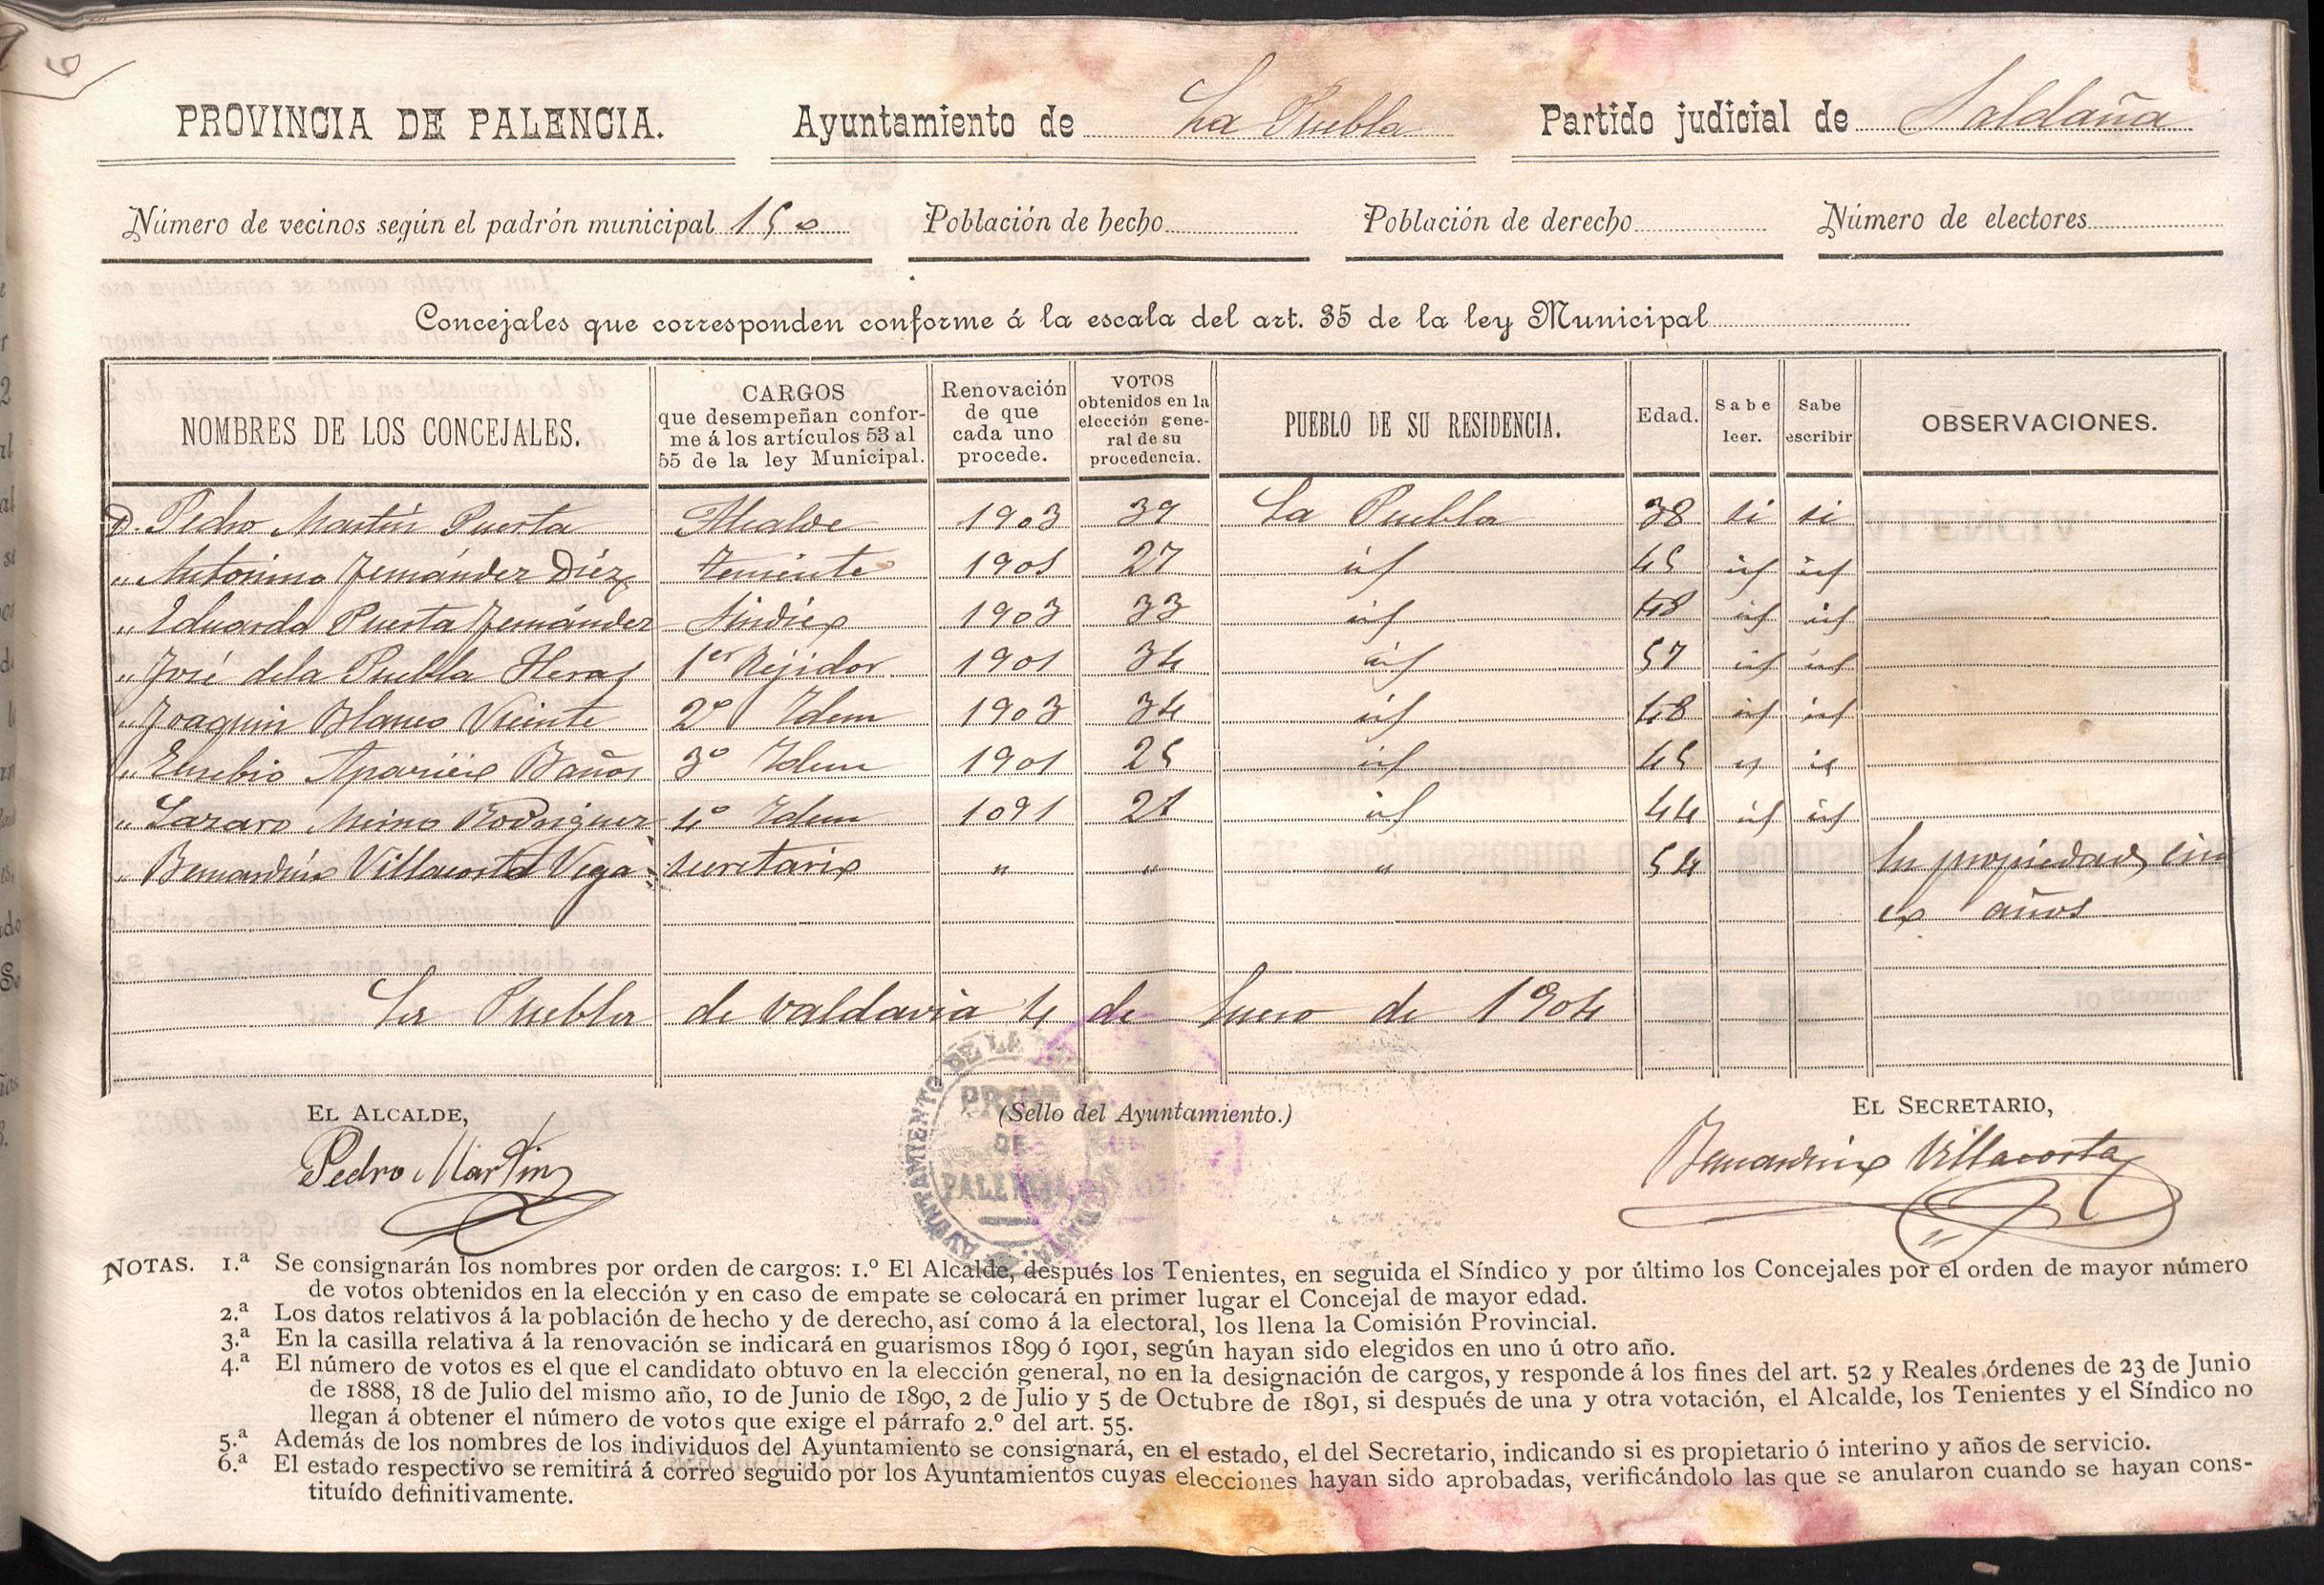 PROVINCIA DE PALENCIA. Ayuntamiento de La Puebla Partido judicial de Saldaña
Número de vecinos según el padrón municipal 150 Población de hecho Población de derecho Número de electores
Concejales que corresponden conforme á la escala del art. 35 de la ley Municipal
NOMBRES DE LOS CONCEJALES. CARGOS que desempeñan conforme á los artículos 53 al 55 de la ley Municipal. Renovación de que cada uno procede. VOTOS obtenidos en la elección general de su procedencia. PUEBLO DE SU RESIDENCIA. Edad. Sabe leer. Sabe escribir OBSERVACIONES.
D. Pedro Martín Puerta Alcalde 1903 39 La Puebla 38 si si
" Antonino Fernández Díez Teniente 1901 27 id 45 id id
" Eduardo Puerta Fernández Síndico 1903 33 id 48 id id
" José de la Puebla Heras 1er Rejidor 1901 34 id 57 id id
" Joaquin Blanco Vicente 2º Idem 1903 34 id 48 id id
" Eusebio Aparicio Baños 3º Idem 1901 25 id 45 id id
" Lazaro Rodriguez 4º Idem 1091 id 44 id id
" Bernardino Villacorta Vega secretario " " " 54 En propiedad, cin
co años
La Puebla de Valdavia 4 de Enero de 1904
EL ALCALDE, (Sello del Ayuntamiento.) EL SECRETARIO,
Pedro Martin Bernardino Villacorta
AYUNTAMIENTO DE LA
PROV
DE
PALENCIA
NOTAS. 1.ª Se consignarán los nombres por orden de cargos: 1.º El Alcalde, después los Tenientes, en seguida el Síndico y por último los Concejales por el orden de mayor número
de votos obtenidos en la elección y en caso de empate se colocará en primer lugar el Concejal de mayor edad.
2.ª Los datos relativos á la población de hecho y de derecho, así como á la electoral, los llena la Comisión Provincial.
3.ª En la casilla relativa á la renovación se indicará en guarismos 1899 ó 1901, según hayan sido elegidos en uno ú otro año.
4.ª El número de votos es el que el candidato obtuvo en la elección general, no en la designación de cargos, y responde á los fines del art. 52 y Reales órdenes de 23 de Junio
de 1888, 18 de Julio del mismo año, 10 de Junio de 1890, 2 de Julio y 5 de Octubre de 1891, si después de una y otra votación, el Alcalde, los Tenientes y el Síndico no
llegan á obtener el número de votos que exige el párrafo 2.º del art. 55.
5.ª Además de los nombres de los individuos del Ayuntamiento se consignará, en el estado, el del Secretario, indicando si es propietario ó interino y años de servicio.
6.ª El estado respectivo se remitirá á correo seguido por los Ayuntamientos cuyas elecciones hayan sido aprobadas, verificándolo las que se anularon cuando se hayan cons-
tituído definitivamente.